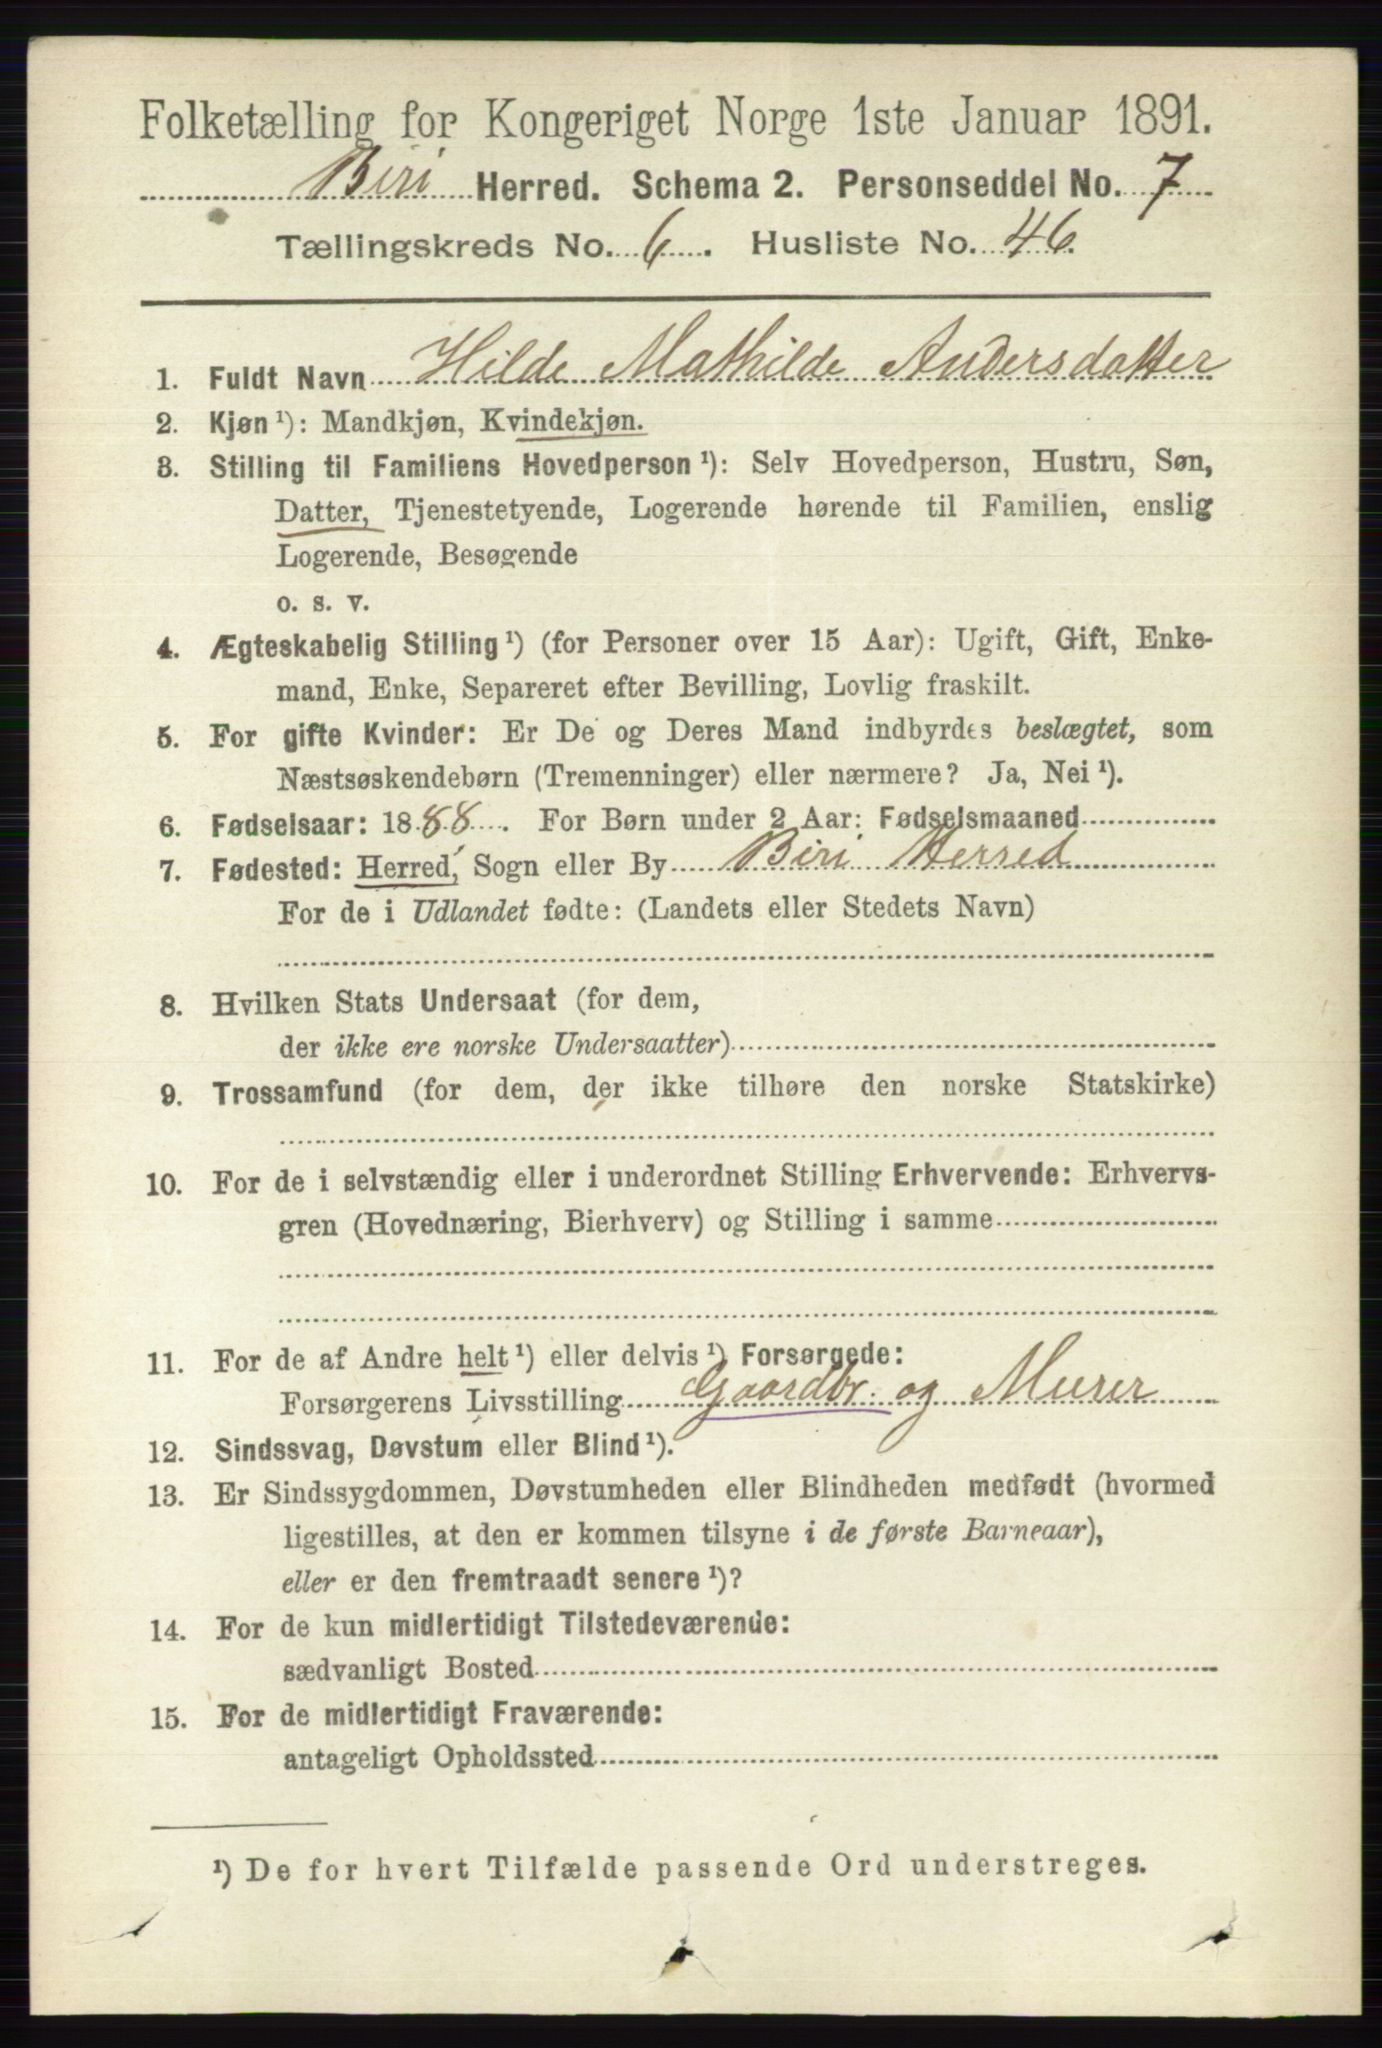 Folketælling for Kongeriget Norge 1ste Januar 1891.
Biri Herred. Schema 2. Personseddel No. 7
Tællingskreds No. 6. Husliste No. 46.
1. Fuldt Navn Hilde Mathilde Andersdatter
2. Kjøn ¹): Mandkjøn, Kvindekjøn.
3. Stilling til Familiens Hovedperson ¹): Selv Hovedperson, Hustru, Søn,
Datter, Tjenestetyende, Logerende hørende til Familien, enslig
Logerende, Besøgende
o. s. v.
4. Ægteskabelig Stilling ¹) (for Personer over 15 Aar): Ugift, Gift, Enke-
mand, Enke, Separeret efter Bevilling, Lovlig fraskilt.
5. For gifte Kvinder: Er De og Deres Mand indbyrdes beslægtet, som
Næstsøskendebørn (Tremenninger) eller nærmere? Ja, Nei ¹).
6. Fødselsaar: 1888. For Børn under 2 Aar: Fødselsmaaned
7. Fødested: Herred, Sogn eller By Biri Herred
For de i Udlandet fødte: (Landets eller Stedets Navn)
8. Hvilken Stats Undersaat (for dem,
der ikke ere norske Undersaatter)
9. Trossamfund (for dem, der ikke tilhøre den norske Statskirke)
10. For de i selvstændig eller i underordnet Stilling Erhvervende: Erhvervs-
gren (Hovednæring, Bierhverv) og Stilling i samme
11. For de af Andre helt ¹) eller delvis ¹) Forsørgede:
Forsørgerens Livsstilling Gaardbr. og Murer
12. Sindssvag, Døvstum eller Blind ¹).
13. Er Sindssygdommen, Døvstumheden eller Blindheden medfødt (hvormed
ligestilles, at den er kommen tilsyne i de første Barneaar),
eller er den fremtraadt senere ¹)?
14. For de kun midlertidigt Tilstedeværende:
sædvanligt Bosted
15. For de midlertidigt Fraværende:
antageligt Opholdssted
¹) De for hvert Tilfælde passende Ord understreges.